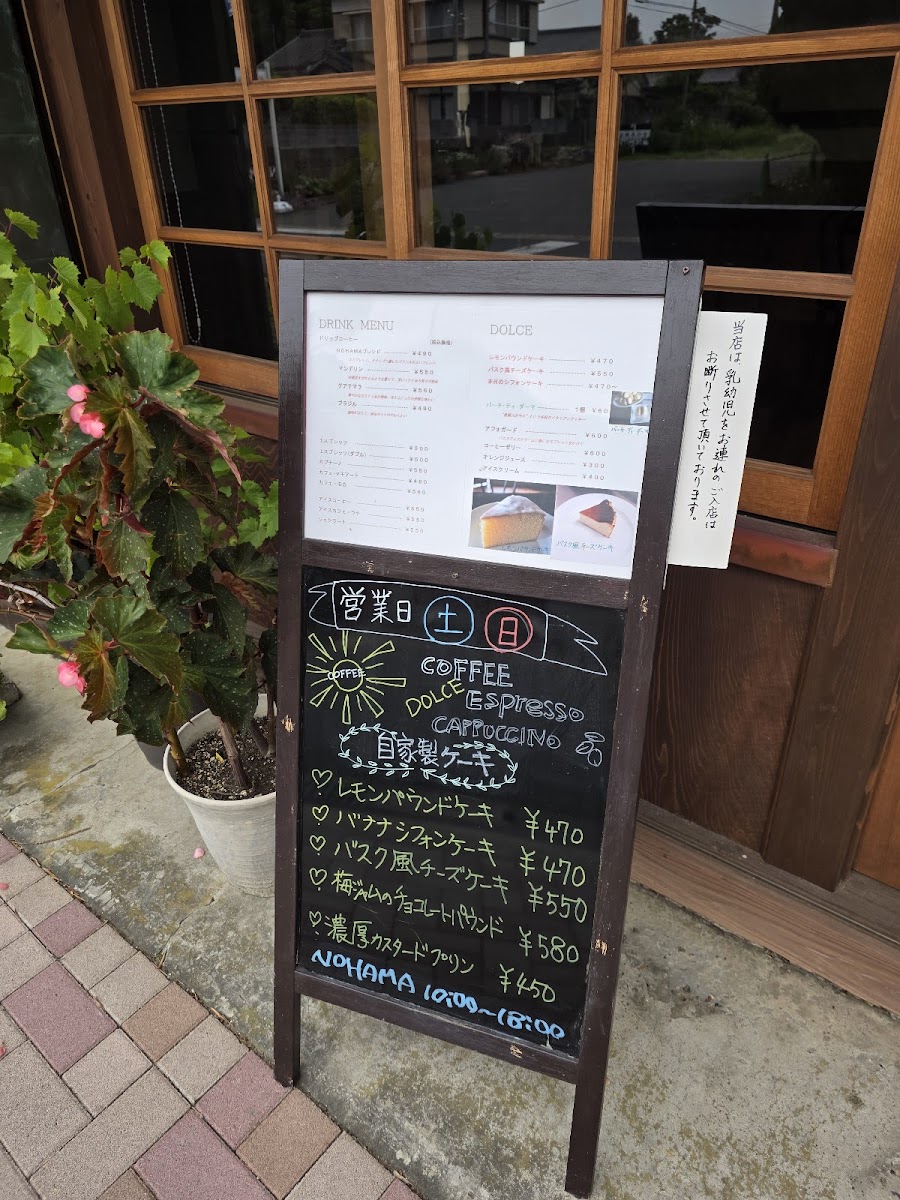 DRINK MENU
(税込価格)
ドリップコーヒー
NOHAMAブレンド ¥490
マンデリン ¥550
グアテマラ ¥550
ブラジル ¥490
エスプレッソ
エスプレッソ(ダブル)
カプチーノ ¥550
アイスコーヒー ¥550
DOLCE
レモンパウンドケーキ ¥470
バスク風チーズケーキ ¥550
本日のシフォンケーキ ¥470~
バーチ・ディ・ダーマ 1個 ¥60
アフォガード ¥600
コーヒーゼリー ¥600
オレンジジュース ¥300
アイスクリーム ¥400
バスク風チーズケーキ
当店は、乳幼児をお連れのご入店は
お断りさせて頂いております。
営業日 土 日
COFFEE
COFFEE
DOLCE
Espresso
CAPPUCCINO
自家製ケーキ
♡レモンパウンドケーキ ¥470
♡バナナシフォンケーキ ¥470
♡バスク風チーズケーキ ¥550
♡梅ジャムのチョコレートパウンド ¥580
♡濃厚カスタードプリン ¥450
NOHAMA 10:00~18:00